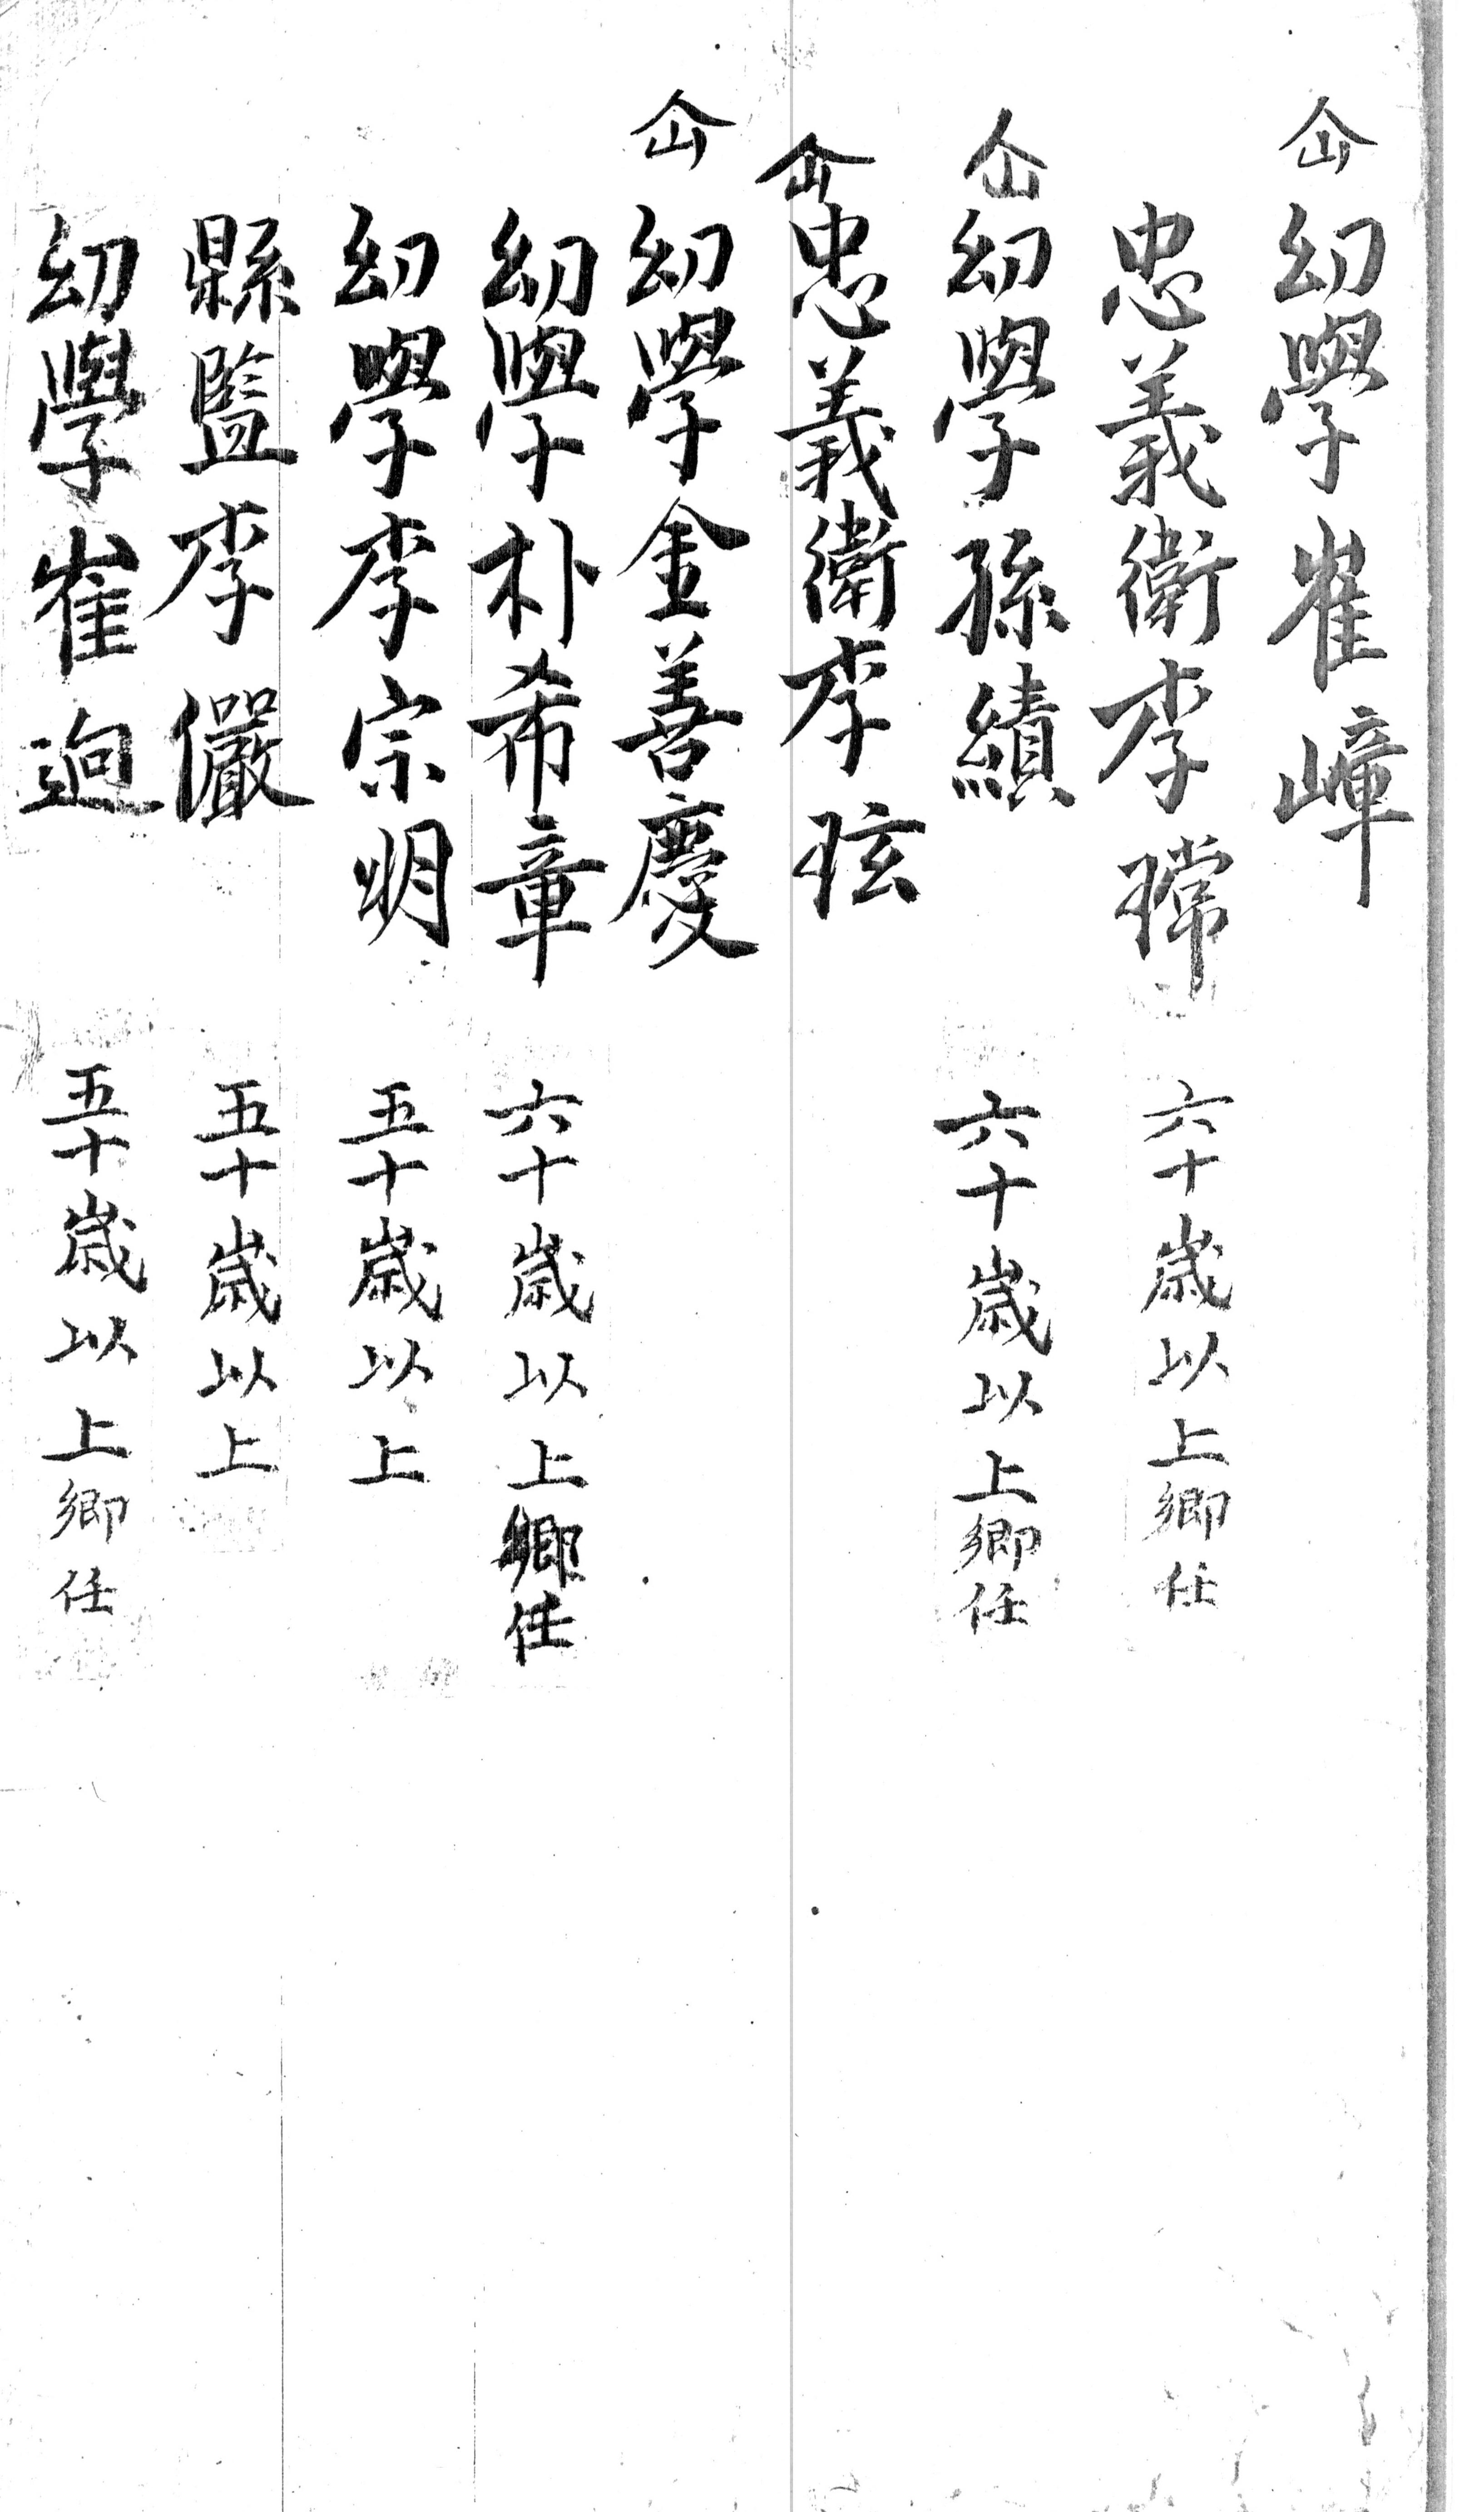 仚幼學崔嶂
忠義衛李璫 六十歲以上鄕任
仚幼學孫績 六十歲以上鄕任
仚忠義衛李玹
仚幼學金善慶
幼學朴希章 六十歲以上鄕任
幼學李宗明 五十歲以上
縣監李儼 五十歲以上
幼學崔逈 五十歲以上鄕任